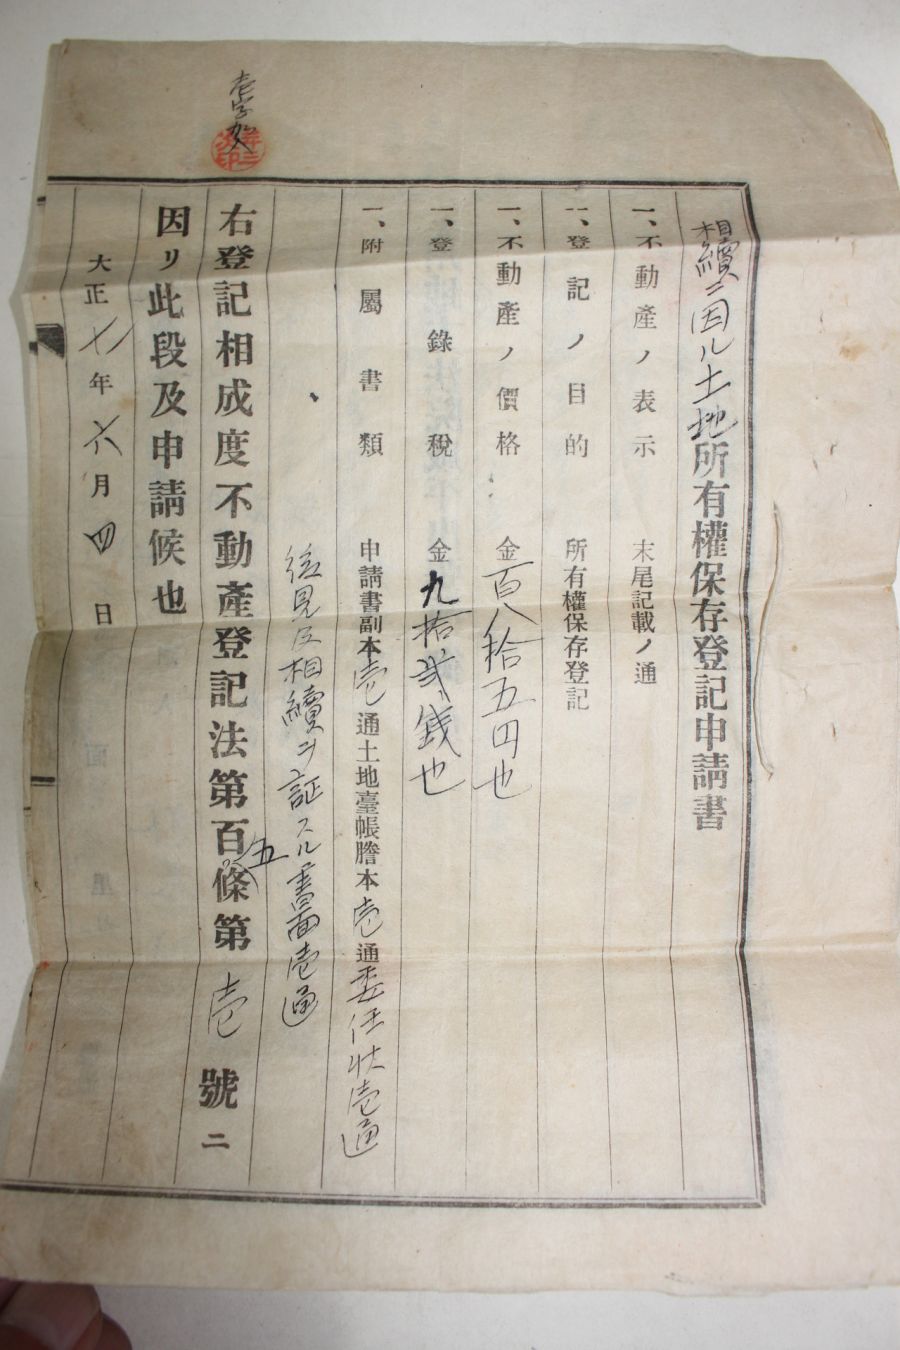 相續ニ因ル土地所有權保存登記申請書
一、不動產ノ表示 末尾記載ノ通
一、登記ノ目的 所有權保存登記
一、不動產ノ價格 金百八拾五円也
一、登錄稅 金九拾弐錢也
一、附屬書類 申請書副本壱通土地臺帳謄本壱通委任状壱通
後見及相續ヲ証スル書面壱通
右登記相成度不動產登記法第百五條第壱號ニ
因リ此段及申請候也
大正 年六月四日
壱字加入